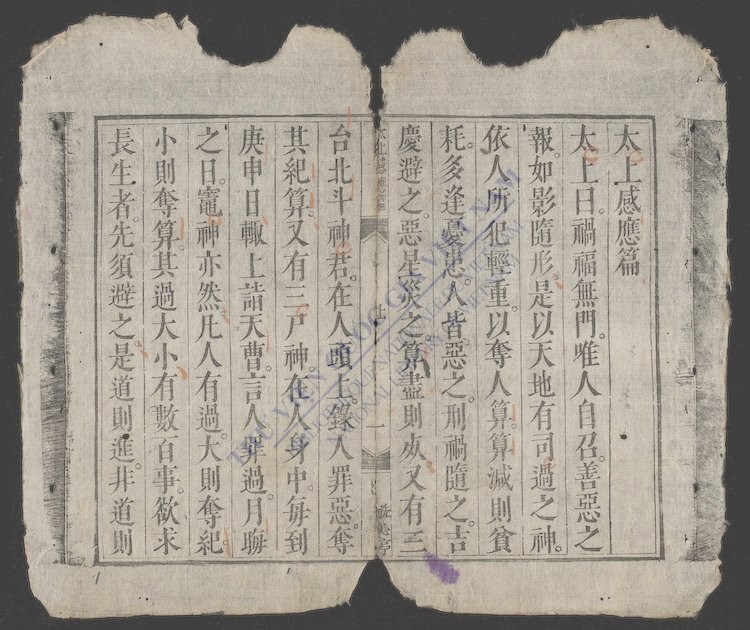 太上感應篇
太上曰。禍福無門。唯人自召。善惡之
報。如影隨形。是以天地有司過之神。
依人所犯輕重。以奪人算。算減則貧
耗。多逢憂患。人皆惡之。刑禍隨之。吉
慶避之。惡星災之。算盡則𣦸。又有三
台北斗神君。在人頭上。錄人罪惡。奪
其紀算。又有三尸神。在人身中。每到
庚申日。輙上詣天曹。言人罪過。月晦
之日。竈神亦然。凡人有過。大則奪紀。
小則奪算。其過大小。有數百事。欲求
長生者。先須避之。是道則進。非道則
一
THU VIEN QUOC GIA VIET NAM
NATIONAL LIBRARY OF VIETNAM